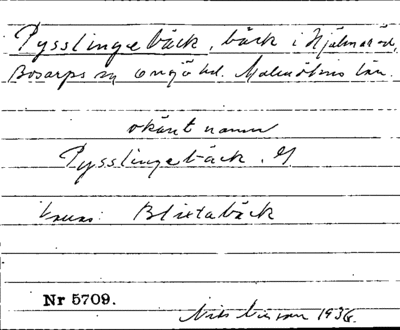 Pysslingebäck, bäck i Hjälmaröd,
Bosarps sn Onsjö hd. Malmöhus län.
okänt namn
Pysslingebäck.
Blixtabäck
Nr 5709.
Nils 1936.